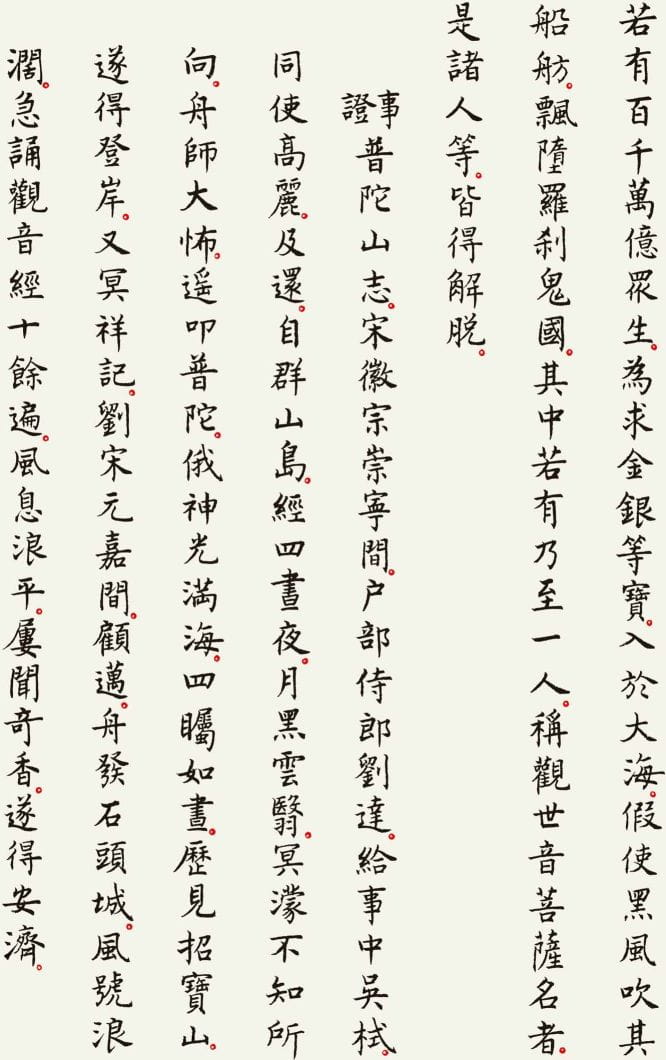 若有百千萬億眾生。為求金銀等寶。入於大海。假使黑風吹其
船舫。飄墮羅剎鬼國。其中若有乃至一人。稱觀世音菩薩名者。
是諸人等。皆得解脫。
事證普陀山志。宋徽宗崇寧間。户部侍郎劉達。給事中吳栻。
同使高麗。及還。自群山島。經四晝夜。月黑雲翳。冥濛不知所
向。舟師大怖。遥叩普陀。俄神光滿海。四矚如晝。歷見招寶山。
遂得登岸。又冥祥記。劉宋元嘉間。顧邁。舟發石頭城。風號浪
濶。急誦觀音經十餘遍。風息浪平。屢聞奇香。遂得安濟。